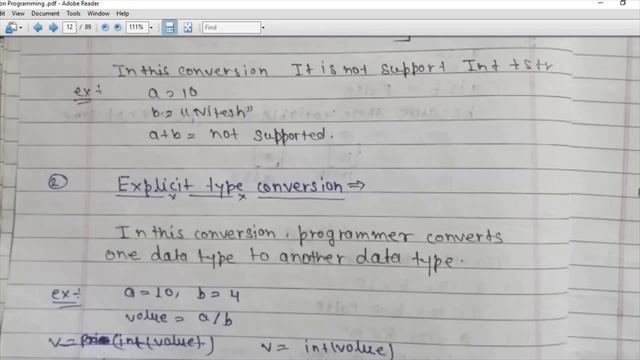 on Programming .pdf - Adobe Reader
dit View Document Tools Window Help
12 / 89 111% Find
In this conversion It is not support Int + str
ex:- a = 10
b = "Nitesh"
a+b = not supported.
② Explicit type conversion ⇒
In this conversion, programmer converts
one data type to another data type.
ex:- a = 10, b = 4
value = a/b
v = (int(value) v = int(value)